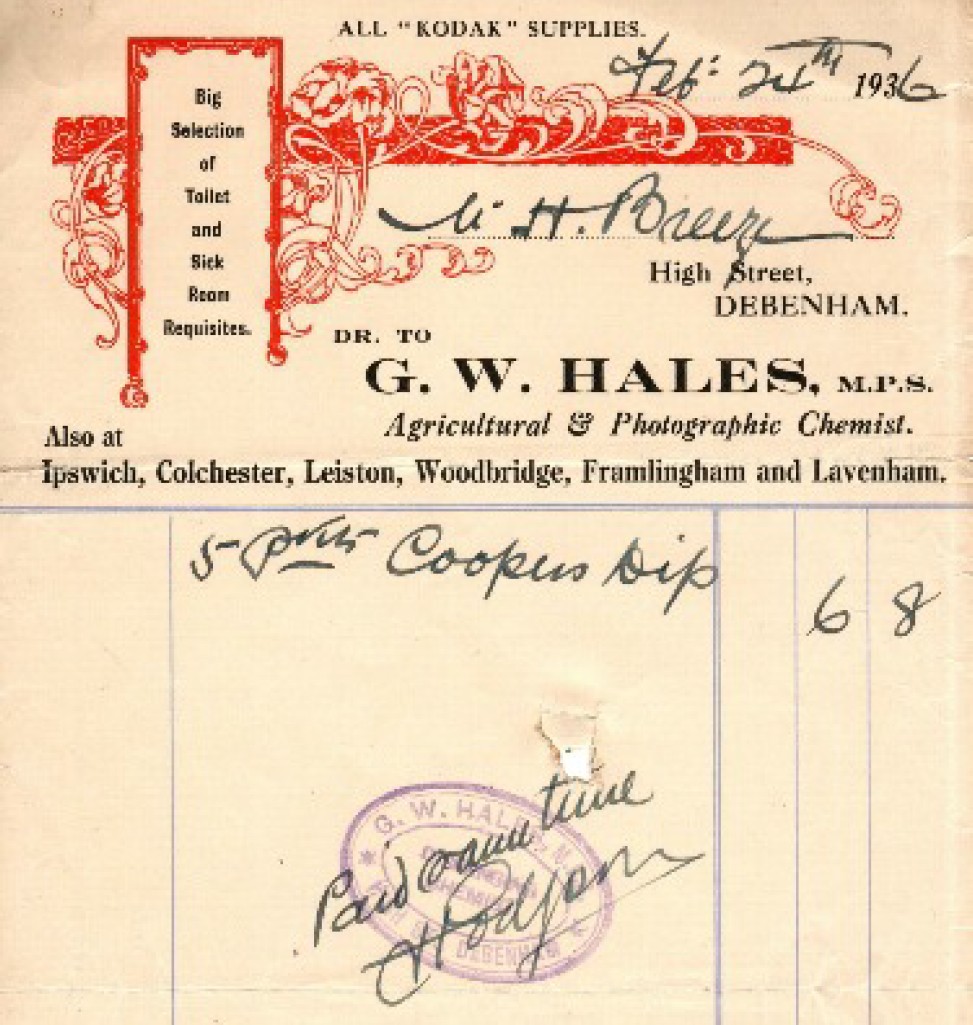 ALL "KODAK" SUPPLIES.
Feb: 24th 1936
Big
Selection
of
Toilet
and
Sick
Room
Requisites.
H. Breeze
High Street,
DEBENHAM.
DR. TO
G. W. HALES, M.P.S.
Agricultural & Photographic Chemist.
Also at
Ipswich, Colchester, Leiston, Woodbridge, Framlingham and Lavenham.
5 Coopers Dip 6 8
G. W. HALES, M.
DEBENHAM
Paid same time
Hodgson